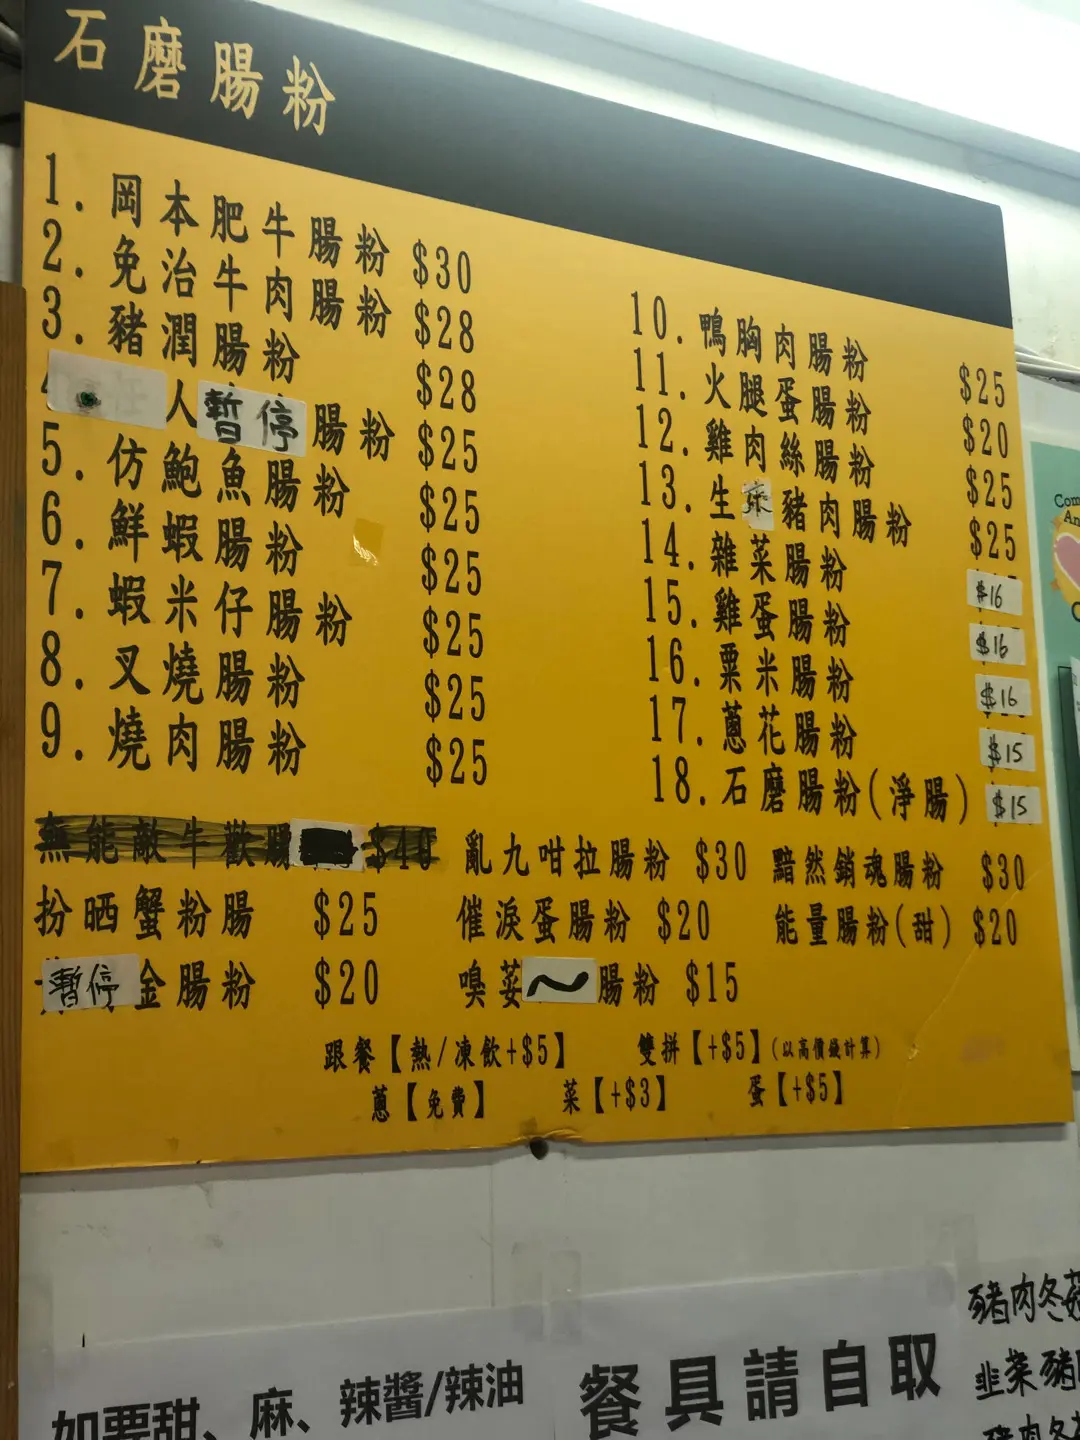 石磨腸粉
1. 岡本肥牛腸粉 $30
2. 免治牛肉腸粉 $28
3. 豬潤腸粉 $28
人暫停腸粉 $25
5. 仿鮑魚腸粉 $25
6. 鮮蝦腸粉 $25
7. 蝦米仔腸粉 $25
8. 叉燒腸粉 $25
9. 燒肉腸粉 $25
10. 鴨胸肉腸粉 $25
11. 火腿蛋腸粉 $20
12. 雞肉絲腸粉 $25
13. 生豬肉腸粉 $25
14. 雜菜腸粉 $16
15. 雞蛋腸粉 $16
16. 粟米腸粉 $16
17. 蔥花腸粉 $15
18. 石磨腸粉(淨腸) $15
無能敵牛歡腸 $40 亂九咁拉腸粉 $30 黯然銷魂腸粉 $30
扮晒蟹粉腸 $25 催淚蛋腸粉 $20 能量腸粉(甜) $20
暫停金腸粉 $20 嗅荽～腸粉 $15
跟餐【熱/凍飲+$5】 雙拼【+$5】(以高價錢計算)
蔥【免費】 菜【+$3】 蛋【+$5】
如要甜、麻、辣醬/辣油
餐具請自取
豬肉冬菇
韭菜豬
豬肉冬
Com
An